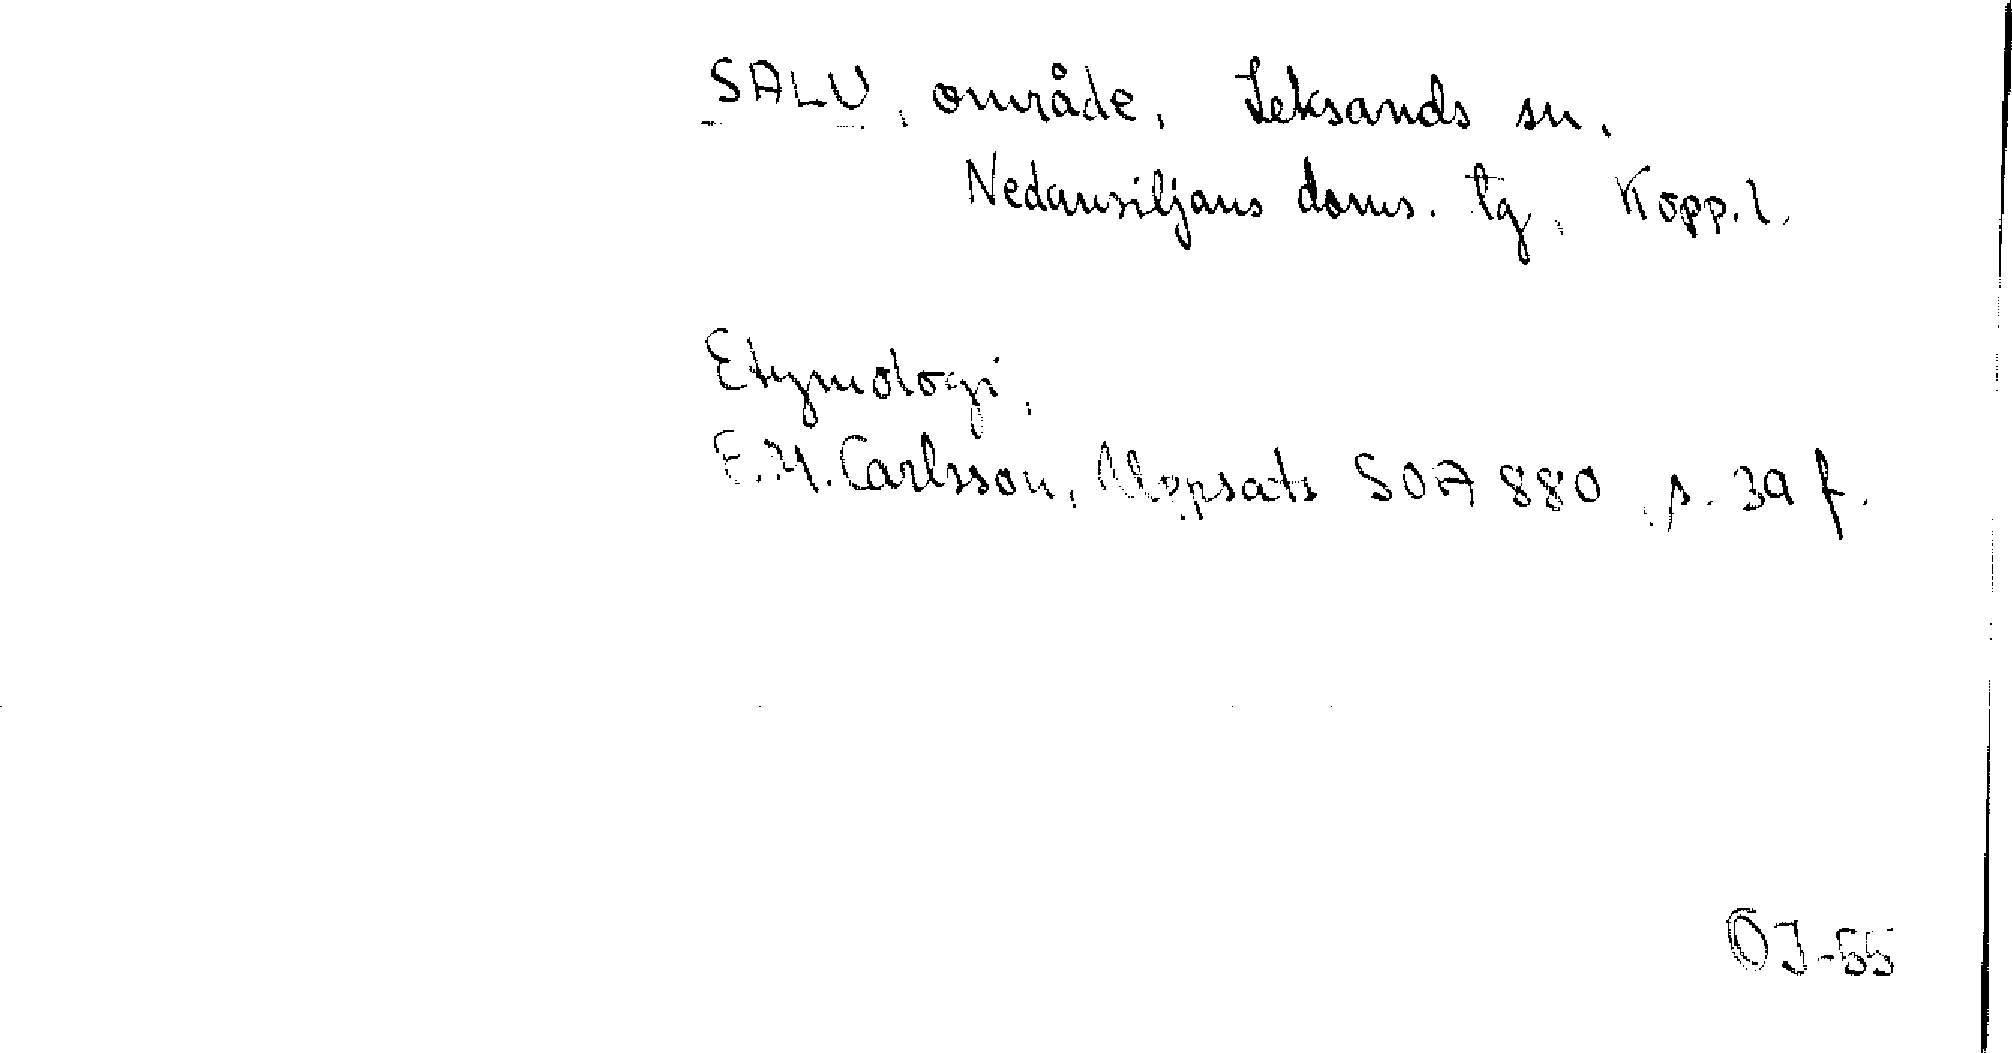 SALU, område, Leksands sn.
Nedansiljans doms. tg, Kopp. l.
Etymologi,
E.H. Carlsson, Uppsats SOA 880, s. 39 f.
OJ-55